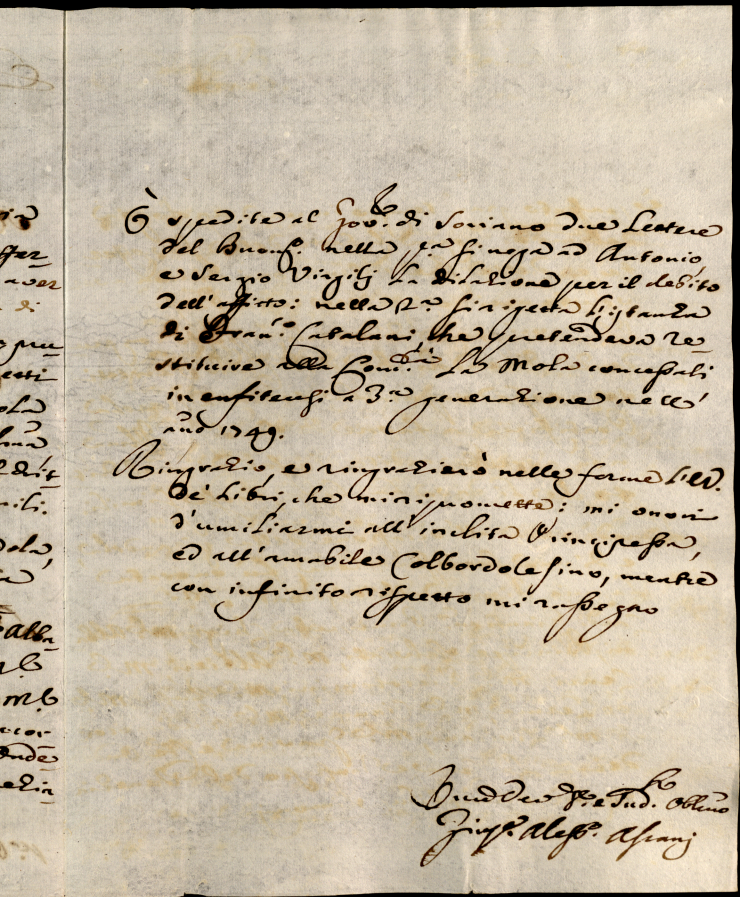 È spedite al Gov.re di Soriano due Lettere
del Buong. nella p.ma si nega ad Antonio,
e Sergio Virgilj la dilazione per il debito
dell'affitto: nella 2.da si rigetta l'istanza
di Fran.co Catalani, che pretendeva re-
stituire alla Com.tà la Mola concessali
in enfiteusi a 3.a generazione nell'
anno 1749.
Ringrazio, e ringrazierò nelle forme
de' Libri, che mi si promette: mi onori
d'umiliarmi all'inclita Principessa,
ed all'amabile Colbordolesino, mentre
con infinito rispetto mi rassegno
Aless. Ascanj
ola
di
nili.
dola,
Alba-